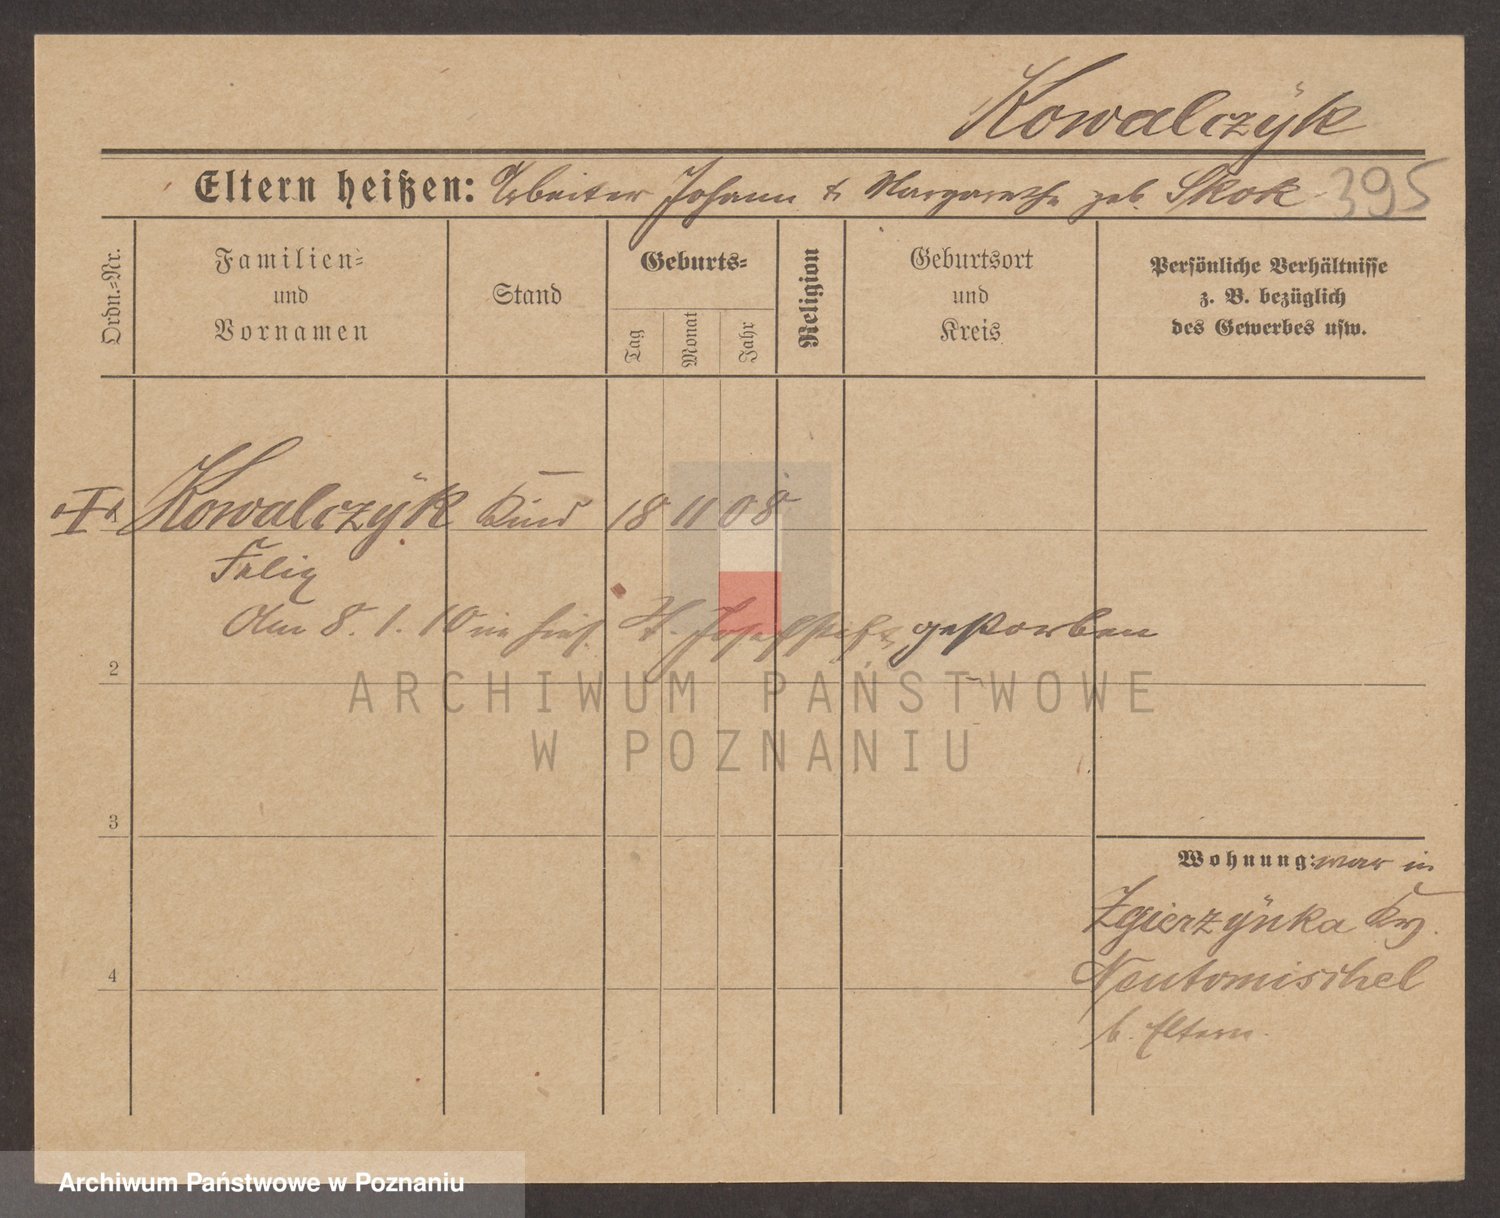 Kowalczÿk
Eltern heißen: Arbeiter Johann & Margarethe geb. Skok 395
Ordn.-Nr.
Familien-
und
Vornamen
Stand
Geburts-
Tag
Monat
Jahr
Religion
Geburtsort
und
Kreis
Persönliche Verhältnisse
z. B. bezüglich
des Gewerbes usw.
1 Kowalczÿk Kind 18 11 08
Felix
Am 8. 1. 10 im hies. St. Josefstift gestorben
2
ARCHIWUM PAŃSTWOWE
W POZNANIU
3
Wohnung: war in
Zgierzÿnka Krs.
Neutomischel
b. Eltern.
4
Archiwum Państwowe w Poznaniu